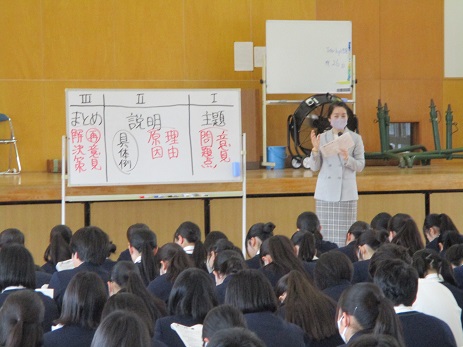 Ⅰ
主題
意見
問題点
Ⅱ
説明
理由
原因
具体例
Ⅲ
まとめ
再意見
解決策